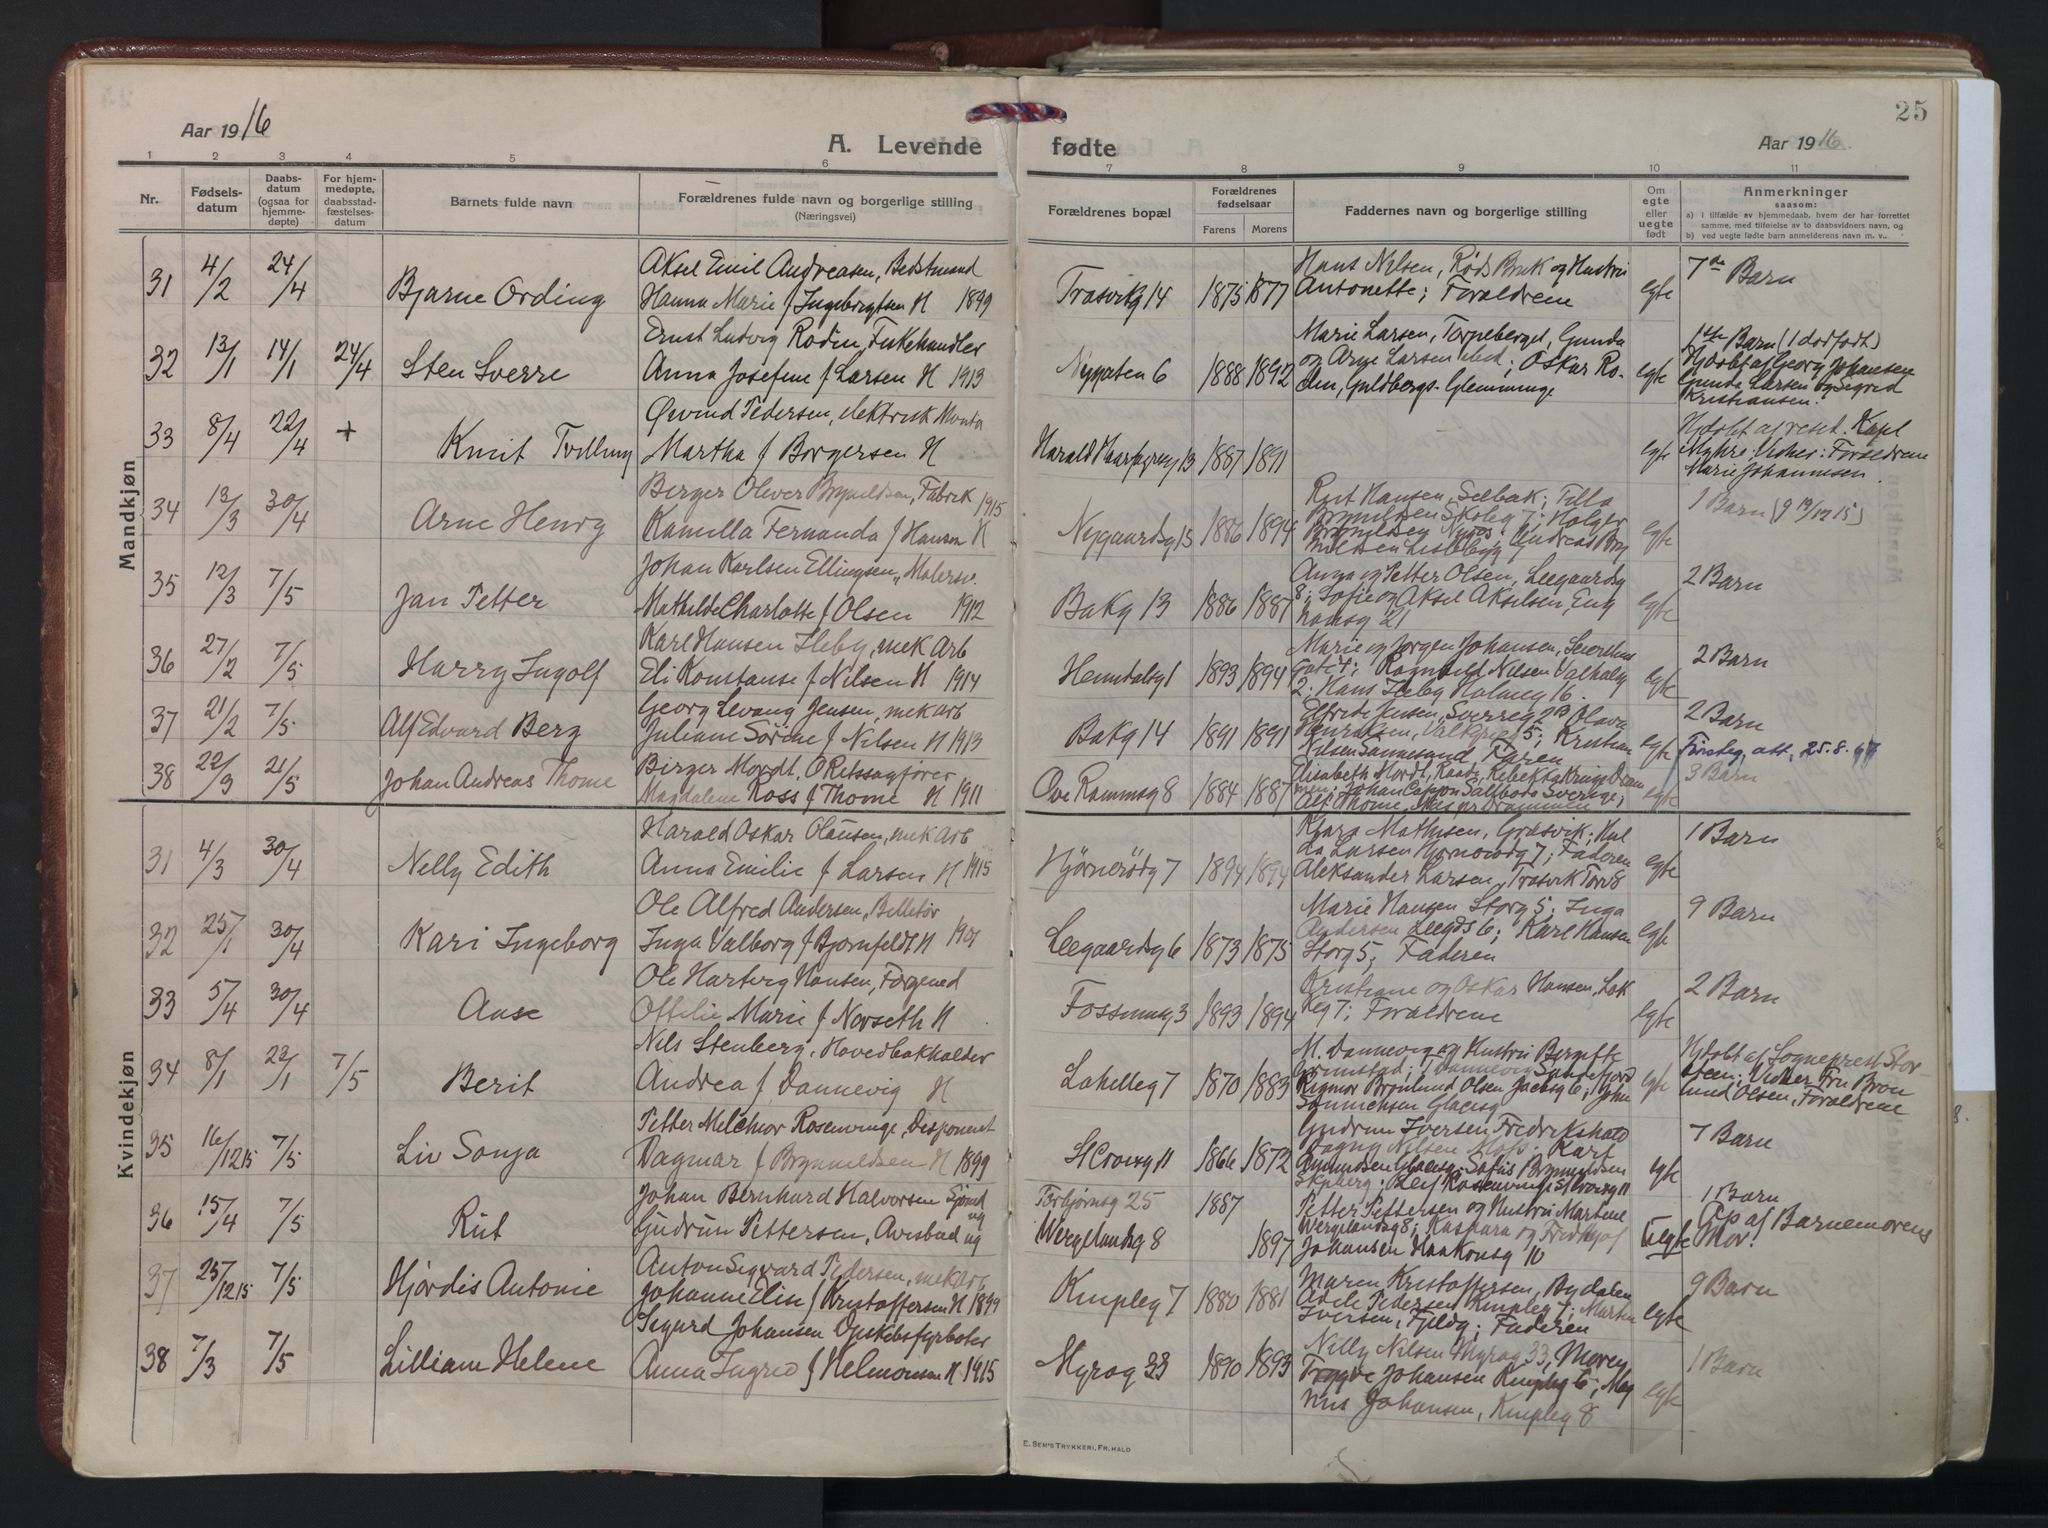 25
Aar 1916
A. Levende
fødte
Aar 1916
1 2 3 4 5 6 7 8 9 10 11
Nr.
Fødsels-
datum
Daabs-
datum
(ogsaa for
hjemme-
døpte)
For hjem-
medøpte,
daabsstad-
fæstelses-
datum
Barnets fulde navn
Forældrenes fulde navn og borgerlige stilling
(Næringsvei)
Forældrenes bopæl
Forældrenes
fødselsaar
Farens Morens
Faddernes navn og borgerlige stilling
Om
egte
eller
uegte
født
Anmerkninger
saasom:
a) I tilfælde av hjemmedaab, hvem der har forrettet
samme, med tilføielse av to daabsvidners navn, og
b) ved uegte fødte barn anmelderens navn m. v..
Mandkjøn
31 4/2 24/4 Bjarne Ording
Aksel Emil Andreasen, Bedstmand
Hanna Marie f Ingebrigtsen H 1899
Trosvikg 14 1875 1877
Hans Nilsen, Røds Bruk og Hustru
Antonette; Forældrene
egte
7de Barn
32 13/1 14/1 24/4 Sten Sverre
Ernst Ludvig Rodin, Fiskehandler
Anna Josefine f Larsen H 1913
Nygaten 6 1888 1892
Marie Larsen, Torpeberget, Gunda
og Arne Larsen sted; Oskar Ro-
din, Guldbergs- Glemminge
egte
1ste Barn (1 dødfødt)
Hjdøbt af Georg Johansen
Gunda Larsen og Sigrid
Kristiansen.
33 8/4 22/4 + Knut Tvilling
Øivind Pedersen, elektrisk Montø
Martha f Borgersen H
Harald Haarfagresg 13 1887 1891
egte
Hjdøbt af resid. Kapl
Myhre. Vidner: Forældrene
Marie Johannesen.
34 13/3 30/4 Arne Henry
Birger Oliver Brynildsen, Fabrik 1915
Kamilla Fernanda f Hansen H
Nygaardsg 15 1886 1894
Rut Hansen, Selbak; Tilla
Brynildsen Skoleg 7; Holger
Brynildsen Nyros; Andreas Bry
nildsen Lisleby
egte
1 Barn (g 19/12 15)
35 12/3 7/5 Jan Petter
Johan Karlsen Ellingsen, Malersv.
Mathilde Charlotte f Olsen 1912
Bakg 13 1886 1887
Anna og Petter Olsen, Leegaardsg
8; Sofie og Aksel Akselsen, Eng
homsg 21
egte
2 Barn
36 27/2 7/5 Harry Ingolf
Karl Hansen Ileby, mek Arb
Eli Konstanse f Nilsen H 1914
Heimdalsg 1 1893 1894
Marie og Jørgen Johansen,
gate 4; Ragnhild Nilsen Valhalg
2; Hans Ileby Holmeg 16.
egte
2 Barn
37 21/2 7/5 Alf Edvard Berg
Georg Levang Jensen, mek arb
Juliane Sørine f Nilsen H 1913
Bakg 14 1891 1891
Elfride Jensen, Sverreg 2B; Olava
Henriksen, Valkyrieg 5; Kristian
Nilsen Sannesund, Faren
egte
2 Barn
Førsteg. att. 25.8.47
38 22/3 21/5 Johan Andreas Thome
Birger Mordt, ORetssagfører
Magdalene Ross f Thome H 1911
Ove Rammsg 8 1884 1887
Elisabeth Mordt, Raade, Rebekka Krings Dram
men; Johan Cappon Saltbods Sverige;
Alf Thome, Drammen
egte
3 Barn
Kvindekjøn
31 4/3 30/4 Nelly Edith
Harald Oskar Olausen, mek Arb
Anna Emilie f Larsen H 1915
Hjørnerødg 7 1894 1894
Klara Mathisen, Græsvik; Hul
da Larsen Hjørnerødg 7; Faderen
Aleksander Larsen, Trosvik Torv 8
egte
1 Barn
32 25/1 30/4 Kari Ingeborg
Ole Alfred Andersen, Billetør
Inga Valborg f Bjørnfeldt H 1901
Leegaardsg 6 1873 1875
Marie Hansen Storg 5; Inga
Andersen Leegds 6; Karl Hansen
Storg 5; Faderen
egte
9 Barn
33 5/4 30/4 Aase
Ole Hartvig Hansen,
Ottilie Marie f Norseth H
Fossumsg 3 1893 1894
Kristiane og Oskar Hansen, Lak
keg 7; Forældrene
egte
2 Barn
34 8/1 23/1 7/5 Berit
Nils Stenberg, Hovedbokholder
Andrea f Dannevig H
Lahelleg 7 1870 1883
M. Dannevig og Hustru Bergitte
Grimstad; I Dannevig Sandefjord
Rigmor Brønlund Olsen Jacobsg 6; John
Sønnichsen Glacisg
egte
Hjdøbt af Sogneprest Stor-
steen; Vidner Fru Brøn
lund Olsen, Forældrene
35 16/12 15 7/5 Liv Sonja
Petter Melchior Rosenvinge, Disponent
Dagmar f Brynnildsen H 1899
St Croixg 11 1866 1872
Gudrun Iversen Fredrikshald
Dagny Nilsen Moss; Karl
Amundsen Glacisg; Sofus Brynnildsen
Skjeberg; Leif Rosenvinge St Croixg 11
egte
7 Barn
36 15/4 7/5 Rut
Johan Bernhard Halvorsen Sjømd ug
Gudrun Pettersen, Avisbud ug
Torbjørnsg 25 1887
Wergelandsg 8 1897
Petter Pettersen og Hustru Martine
Wergelandsg 8; Kaspara og Fredthjof
Johansen Haakonsg 10
Uegte
1 Barn
Op af Barnemorens
Mor.
37 25/12 15 7/5 Hjørdis Antonie
Anton Sigvard Pedersen, mek Arb
Johanne Elise f Kristoffersen H 1899
Kinpleg 7 1880 1881
Maren Kristoffersen, Bydalen
Adele Pedersen Kinpleg 7; Martin
Iversen, Fjeldg; Faderen
egte
9 Barn
38 7/3 7/5 Lilliam Helene
Sigurd Johansen Opskibsfyrbøter
Anna Ingrid f Helmersen H 1915
Myrag 33 1890 1893
Nilly Nilsen Myrag 33, Moren
Trygve Johansen Kinpleg 6; Mag
nus Johansen, Kinpleg 8
egte
1 Barn
E. SEM'S TRYKKERI, FR.HALD